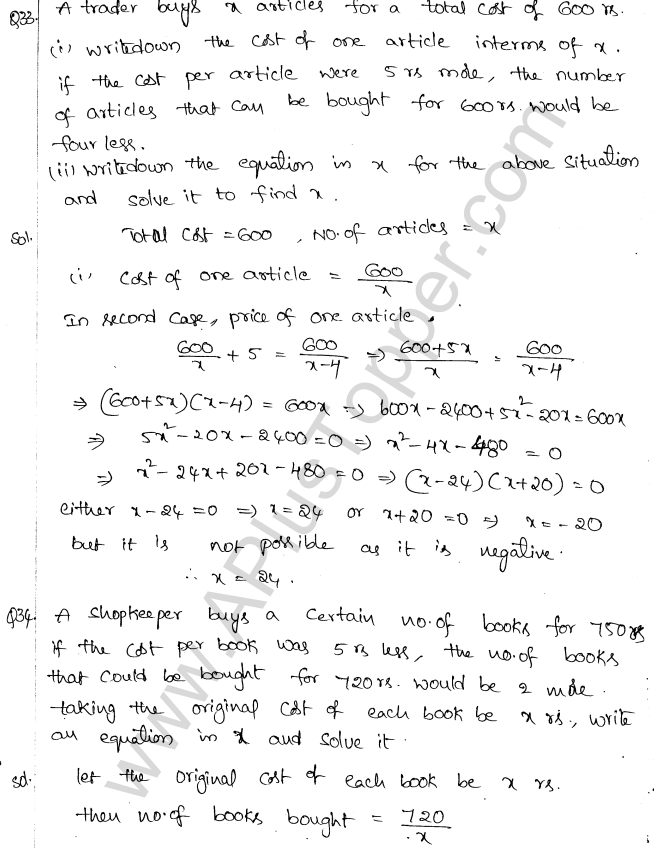 Q33. A trader buys x articles for a total cost of 600 rs.
(i) writedown the cost of one article interms of x.
if the cost per article were 5 rs more, the number
of articles that can be bought for 600 rs. would be
four less.
(ii) writedown the equation in x for the above situation
and solve it to find x.
Sol. Total cost = 600, No. of articles = x
(i) cost of one article = 600/x
In second case, price of one article.
600/x + 5 = 600/(x-4) ⇒ (600+5x)/x = 600/(x-4)
⇒ (600+5x)(x-4) = 600x ⇒ 600x - 2400 + 5x² - 20x = 600x
⇒ 5x² - 20x - 2400 = 0 ⇒ x² - 4x - 480 = 0
⇒ x² - 24x + 20x - 480 = 0 ⇒ (x-24)(x+20) = 0
either x - 24 = 0 ⇒ x = 24 or x + 20 = 0 ⇒ x = - 20
but it is not possible as it is negative.
∴ x = 24.
Q34. A shopkeeper buys a certain no. of books for 750 rs
if the cost per book was 5 rs less, the no. of books
that could be bought for 720 rs. would be 2 more.
taking the original cost of each book be x rs., write
an equation in x and solve it.
sol. let the original cost of each book be x rs.
then no. of books bought = 720/x
www.APlusTopper.com